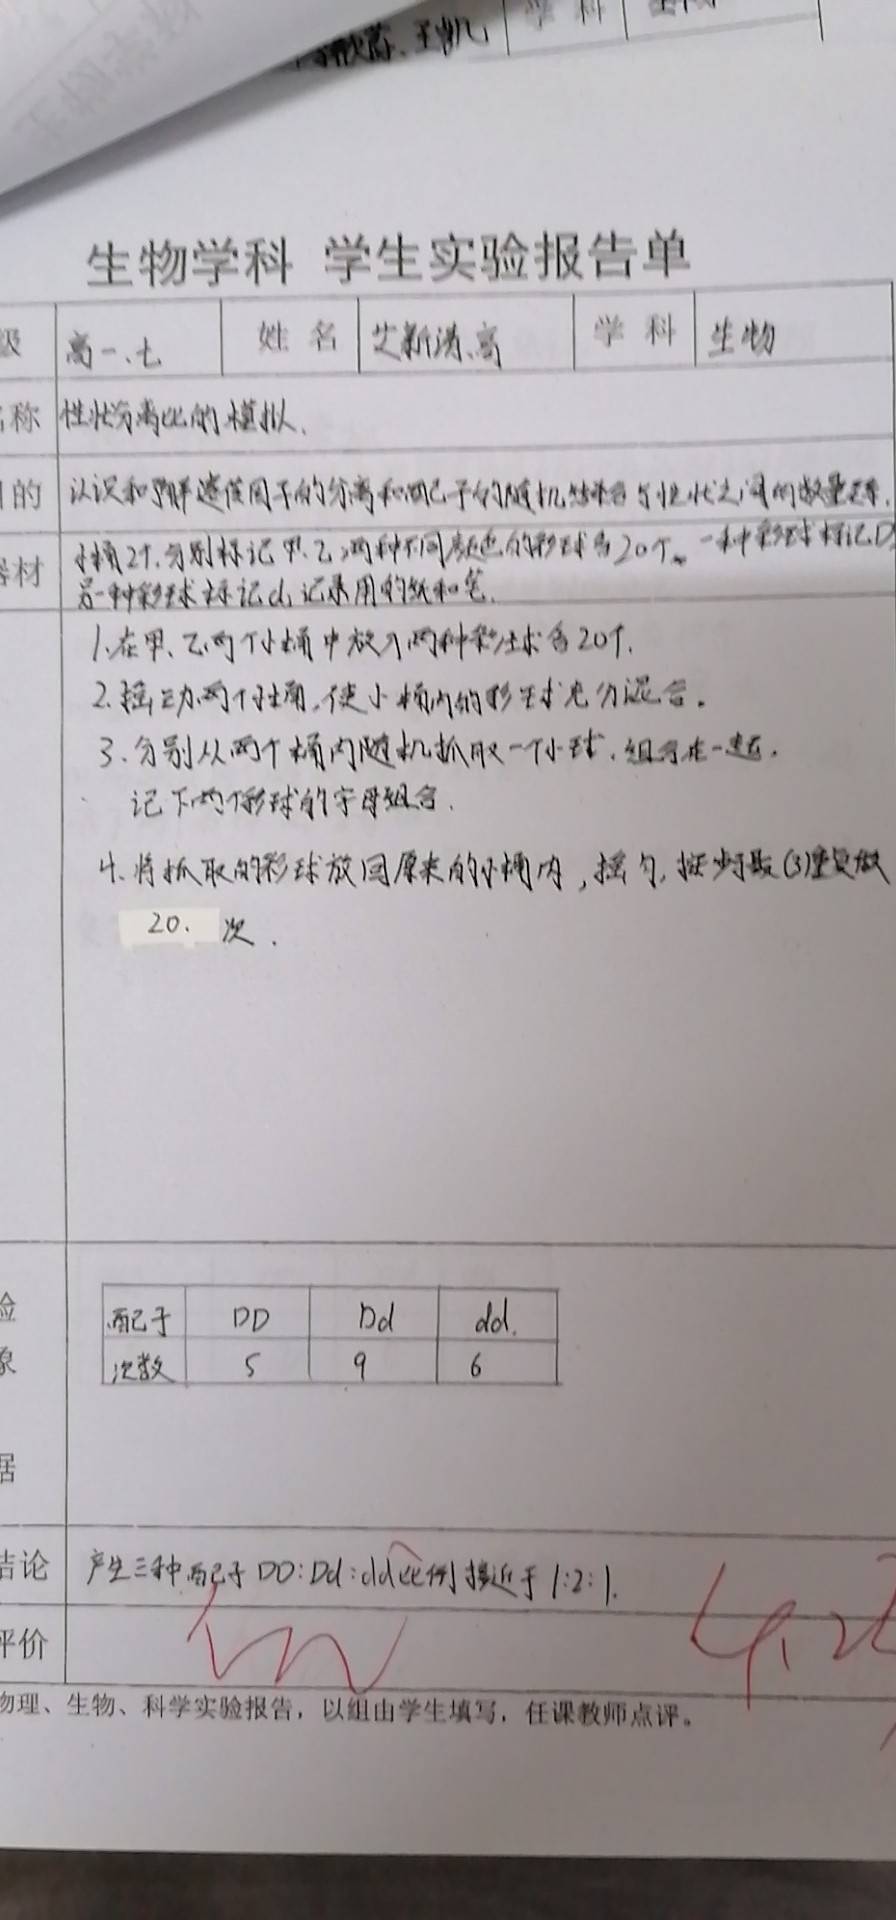 学科
生物学科 学生实验报告单
级 高一、七 姓名 学科 生物
名称 性状分离比的模拟.
目的 认识和理解遗传因子的分离和配子的随机结合与性状之间的数量关系.
器材 小桶2个.分别标记甲.乙,两种不同颜色的彩球各20个. 一种彩球标记D
另一种彩球标记d,记录用的纸和笔.
1.在甲、乙两个小桶中放入两种彩球各20个.
2.摇动两个小桶,使小桶内的彩球充分混合.
3.分别从两个桶内随机抓取一个小球.组合在一起.
记下两个彩球的字母组合.
4.将抓取的彩球放回原来的小桶内,摇匀,按步骤(3)重复做
20. 次.
验
象
据
配子 DD Dd dd.
次数 5 9 6
结论 产生三种配子DD:Dd:dd比例接近于1:2:1.
评价
物理、生物、科学实验报告,以组由学生填写,任课教师点评。